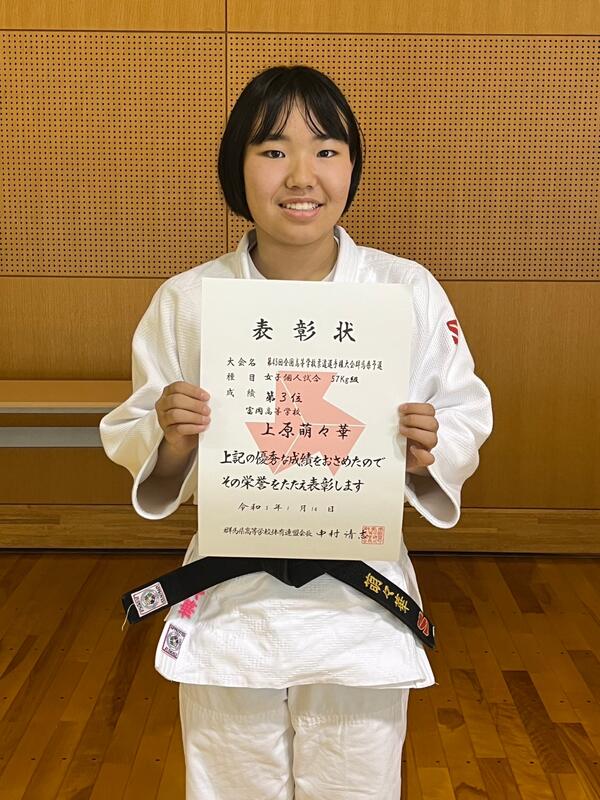 表彰状
大会名 第43回全国高等学校柔道選手権大会群馬県予選
種目 女子個人試合 57kg級
成績 第3位
富岡高等学校
上原萌々華
上記の優秀な成績をおさめたので
その栄誉をたたえ表彰します
令和3年1月16日
群馬県高等学校体育連盟会長 中村清志
萌々華